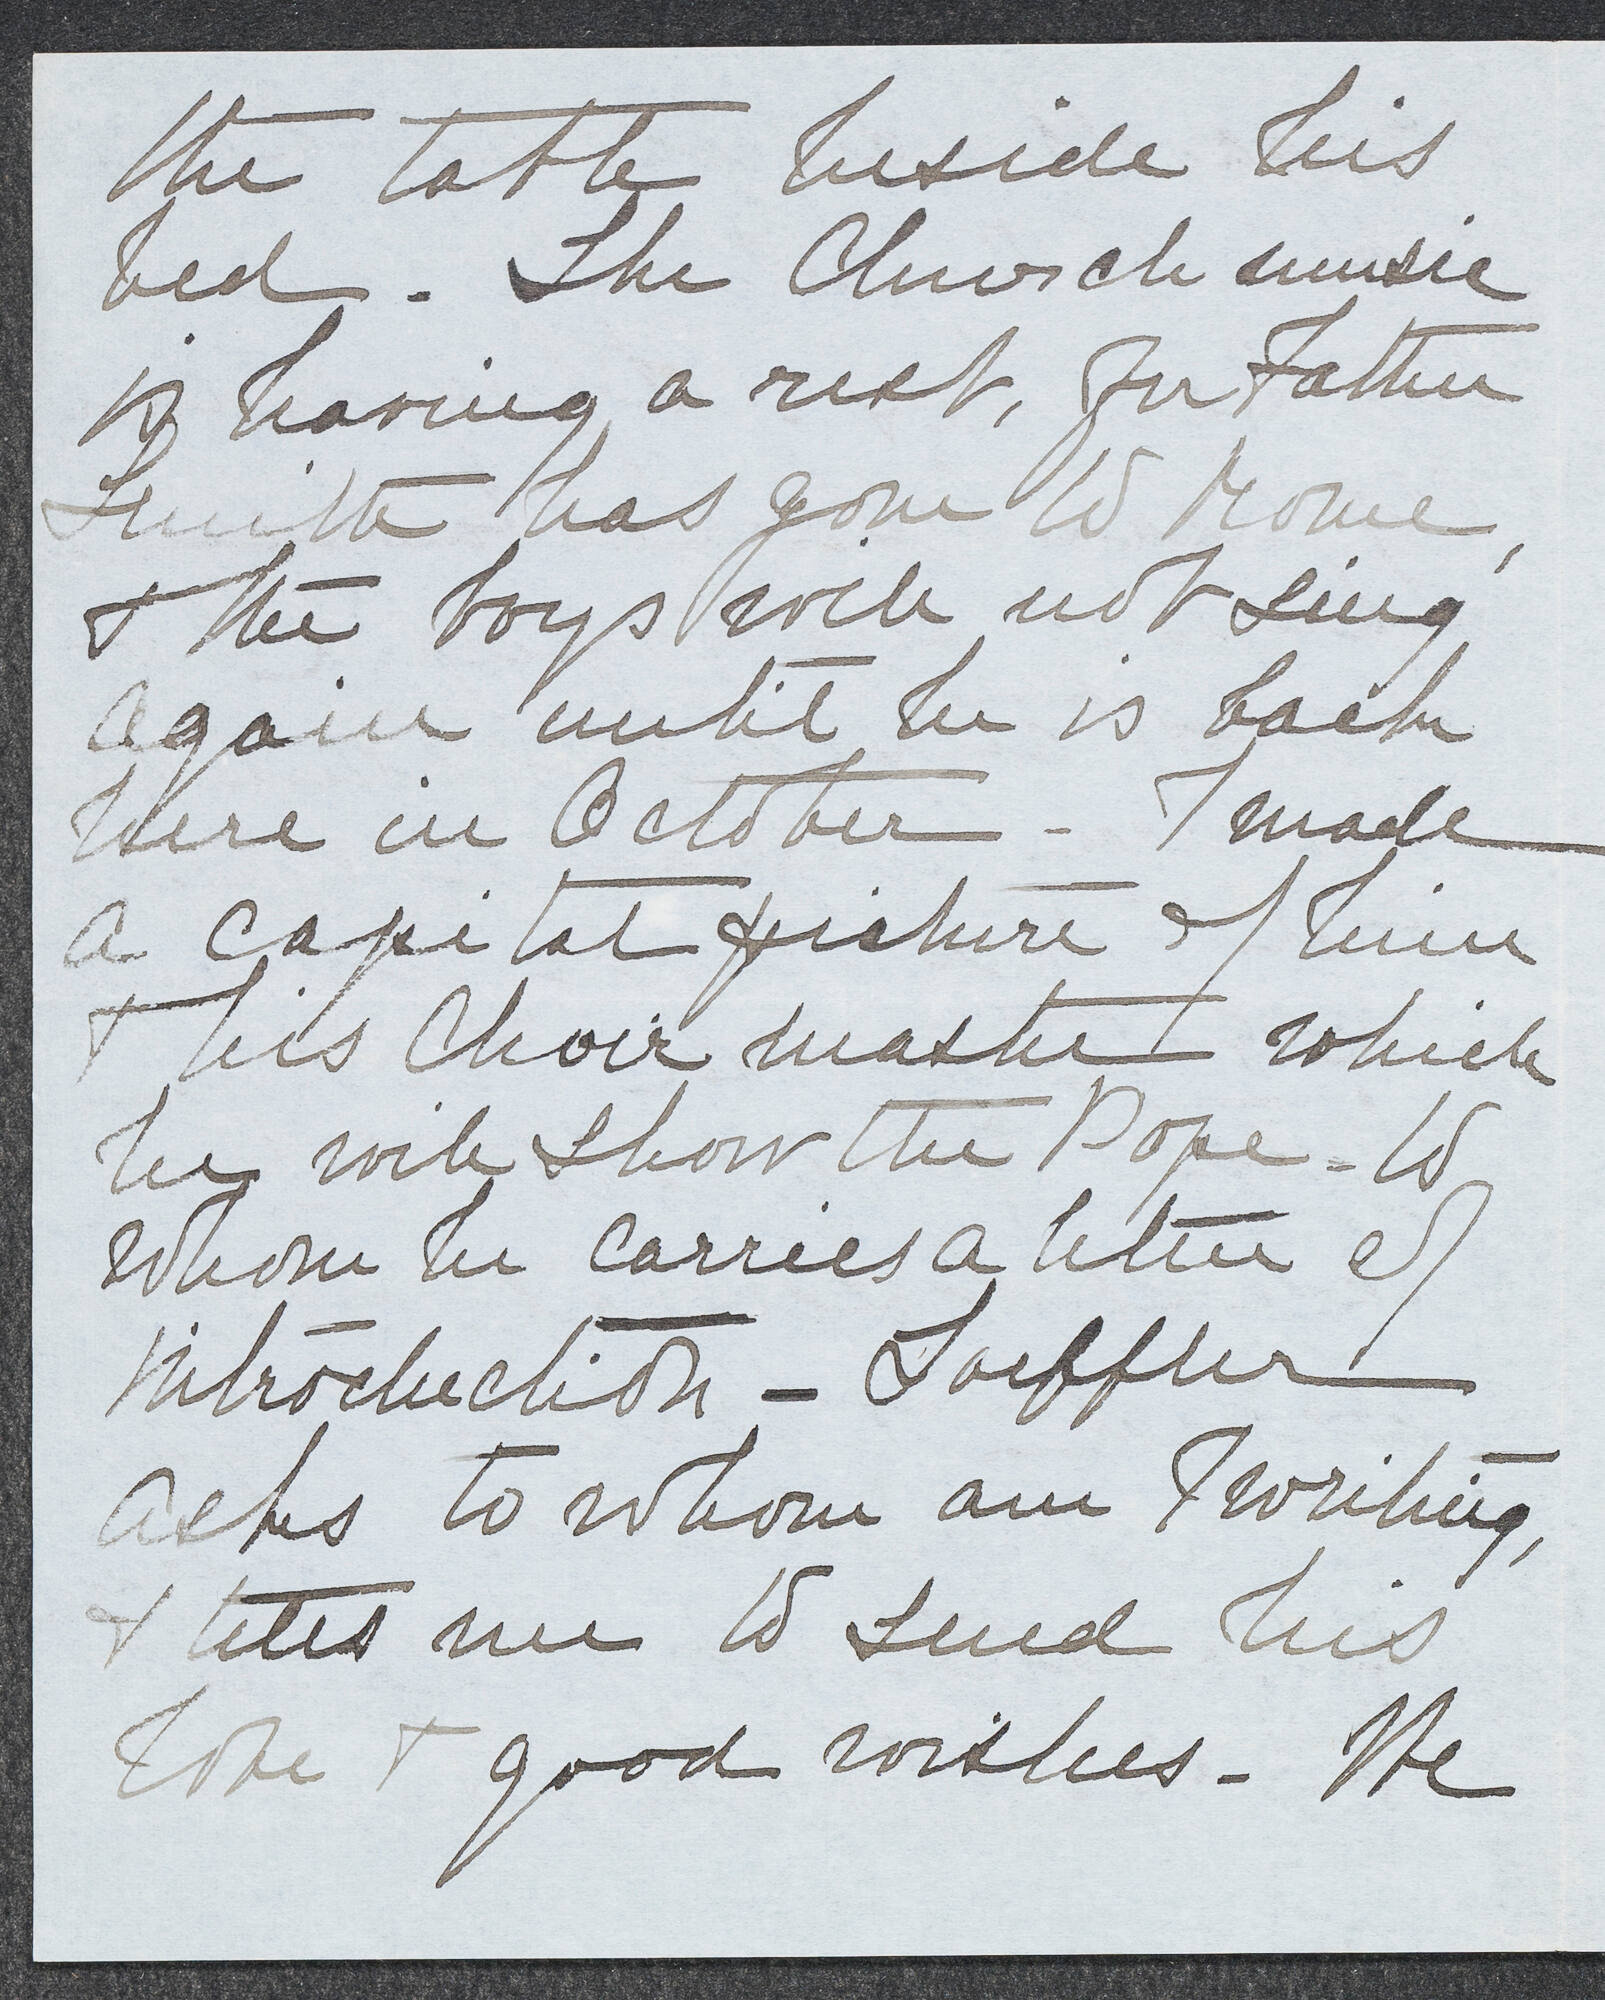 the table beside his
bed. The Church music
is having a rest, for Father
Smith has gone to Rome,
& the boys will not sing
again until he is back
here in October - I made
a capital picture of him
& his Choir master which
he will show the Pope - to
whom he carries a letter of
introduction - Loeffler
asks to whom am I writing,
& tells me to send his
love & good wishes - He